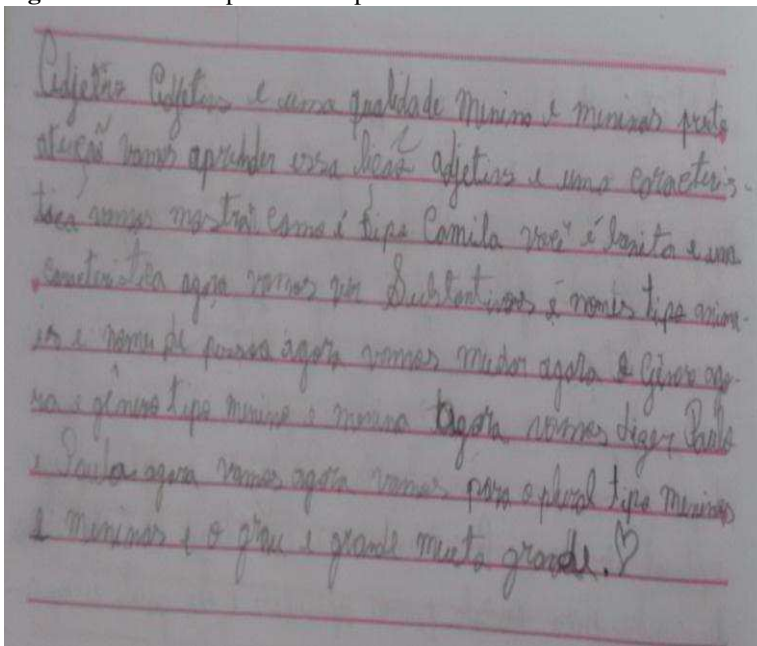 Adjetivo Adjetivo e uma qualidade menino e meninas preto
atenção vamos aprender essa lição adjetivo e uma caracteris-
tica vamos mostrar como é tipo Camila você é bonita e uma
caracteristica agora vamos ver Substantivos é nomes tipo anima-
es e nome de pessoa agora vamos mudar agora Gênero ago-
ra e gênero tipo menino e menina agora vamos diger Paulo
e Paula agora vamos agora vamos para o plural tipo meninos
e meninas e o grau e grande muito grande.